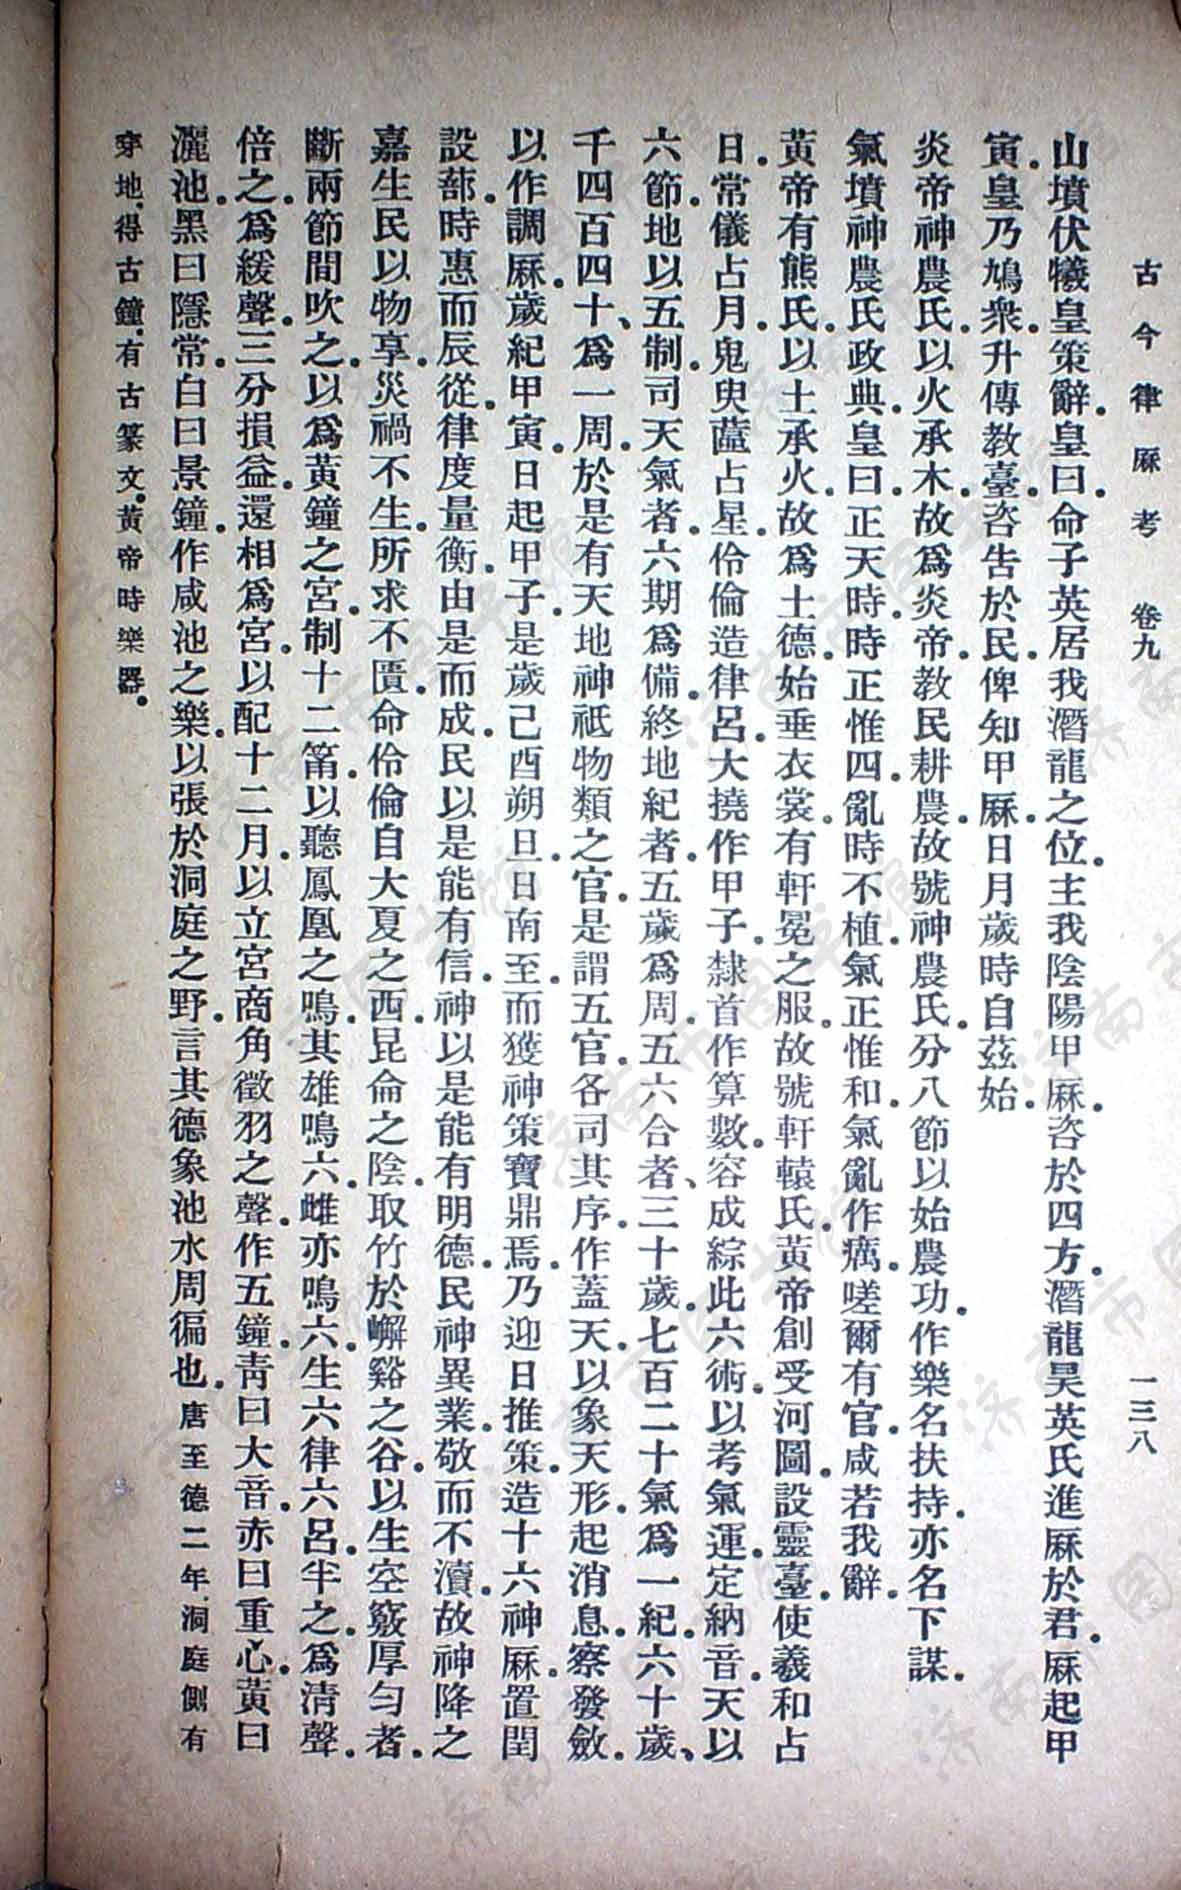 古今律厤考　卷九　一三八
山墳伏犧皇策辭。皇曰。命子英居我潛龍之位。主我陰陽甲厤。咨於四方。潛龍昊英氏進厤於君。厤起甲
寅。皇乃鳩衆。升傳教臺。咨告於民。俾知甲厤。日月歲時自茲始。
炎帝神農氏。以火承木。故爲炎帝。教民耕農。故號神農氏。分八節以始農功。作樂名扶持。亦名下謀。
氣墳神農氏政典。皇曰。正天時。時正惟四。亂時不植。氣正惟和。氣亂作癘。嗟爾有官。咸若我辭。
黃帝有熊氏。以土承火。故爲土德。始垂衣裳。有軒冕之服。故號軒轅氏。黃帝創受河圖。設靈臺。使羲和占
日。常儀占月。鬼臾蓲占星。伶倫造律呂。大撓作甲子。隸首作算數。容成綜此六術。以考氣運。定納音。天以
六節。地以五制。司天氣者。六期爲備。終地紀者。五歲爲周。五六合者、三十歲。七百二十氣爲一紀。六十歲、
千四百四十、爲一周。於是有天地神祇物類之官。是謂五官。各司其序。作蓋天以象天形。起消息。察發斂。
以作調厤。歲紀甲寅。日起甲子。是歲己酉朔旦。日南至。而獲神策寶鼎焉。乃迎日推策。造十六神厤。置閏
設蔀。時惠而辰從。律度量衡。由是而成。民以是能有信。神以是能有明德。民神異業。敬而不瀆。故神降之
嘉生。民以物享。災禍不生。所求不匱。命伶倫自大夏之西。昆侖之陰。取竹於嶰谿之谷。以生空竅厚勻者。
斷兩節間吹之。以爲黃鐘之宮。制十二筩。以聽鳳凰之鳴。其雄鳴六。雌亦鳴六。生六律六呂。半之。爲清聲。
倍之。爲緩聲。三分損益。還相爲宮。以配十二月。以立宮商角徵羽之聲。作五鐘。靑曰大音。赤曰重心。黃曰
灑池。黑曰隱常。白曰景鐘。作咸池之樂。以張於洞庭之野。言其德象池水周徧也。唐至德二年。洞庭側有
穿地。得古鐘。有古篆文。黃帝時樂器。